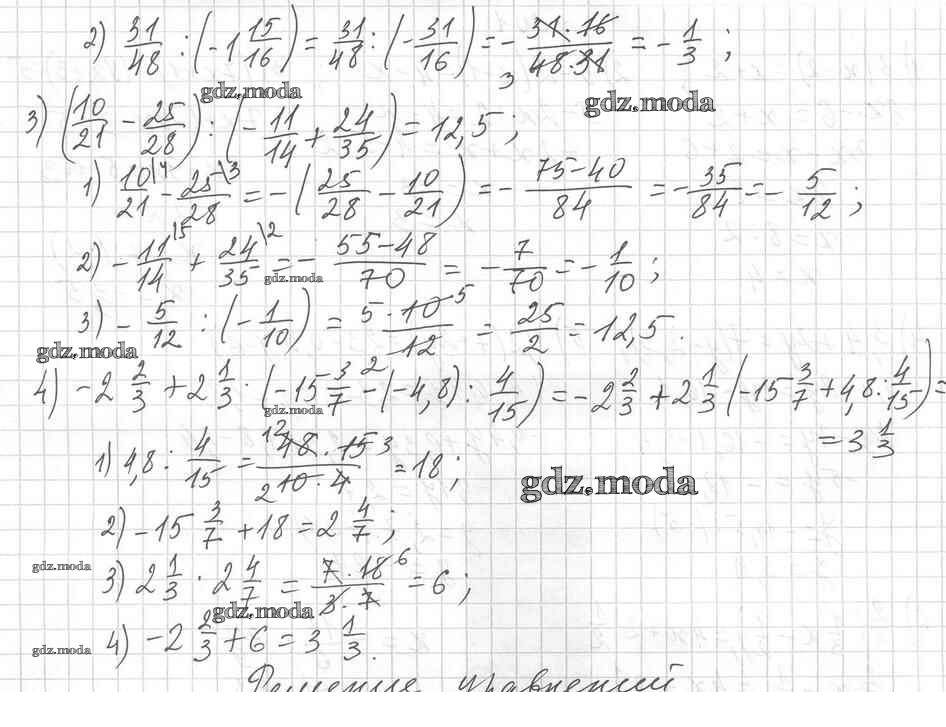 2) 31/48 : (-1 15/16) = 31/48 : (-31/16) = - 31·16/48·31 3 = - 1/3 ;
gdz.moda
gdz.moda
3) (10/21 - 25/28) : (- 11/14 + 24/35) = 12,5 ;
1) 10/21 \4 - 25/28 \3 = - (25/28 - 10/21) = - 75-40/84 = - 35/84 = - 5/12 ;
2) - 11/14 \5 + 24/35 \2 = - 55-48/70 = - 7/70 = - 1/10 ;
gdz.moda
3) - 5/12 : (- 1/10) = 5·10 5/12 = 25/2 = 12,5 .
gdz.moda
4) - 2 2/3 + 2 1/3 · (-15 3/7 - (-4,8) : 4/15) = - 2 2/3 + 2 1/3 (-15 3/7 + 4,8 : 4/15) =
gdz.moda
= 3 1/3
1) 4,8 : 4/15 = 12 48·15 3/2 10·4 = 18 ;
gdz.moda
2) - 15 3/7 + 18 = 2 4/7 ;
gdz.moda
3) 2 1/3 · 2 4/7 = 7·18 6/3·7 = 6 ;
gdz.moda
4) - 2 2/3 + 6 = 3 1/3 .
gdz.moda
Решения уравнений